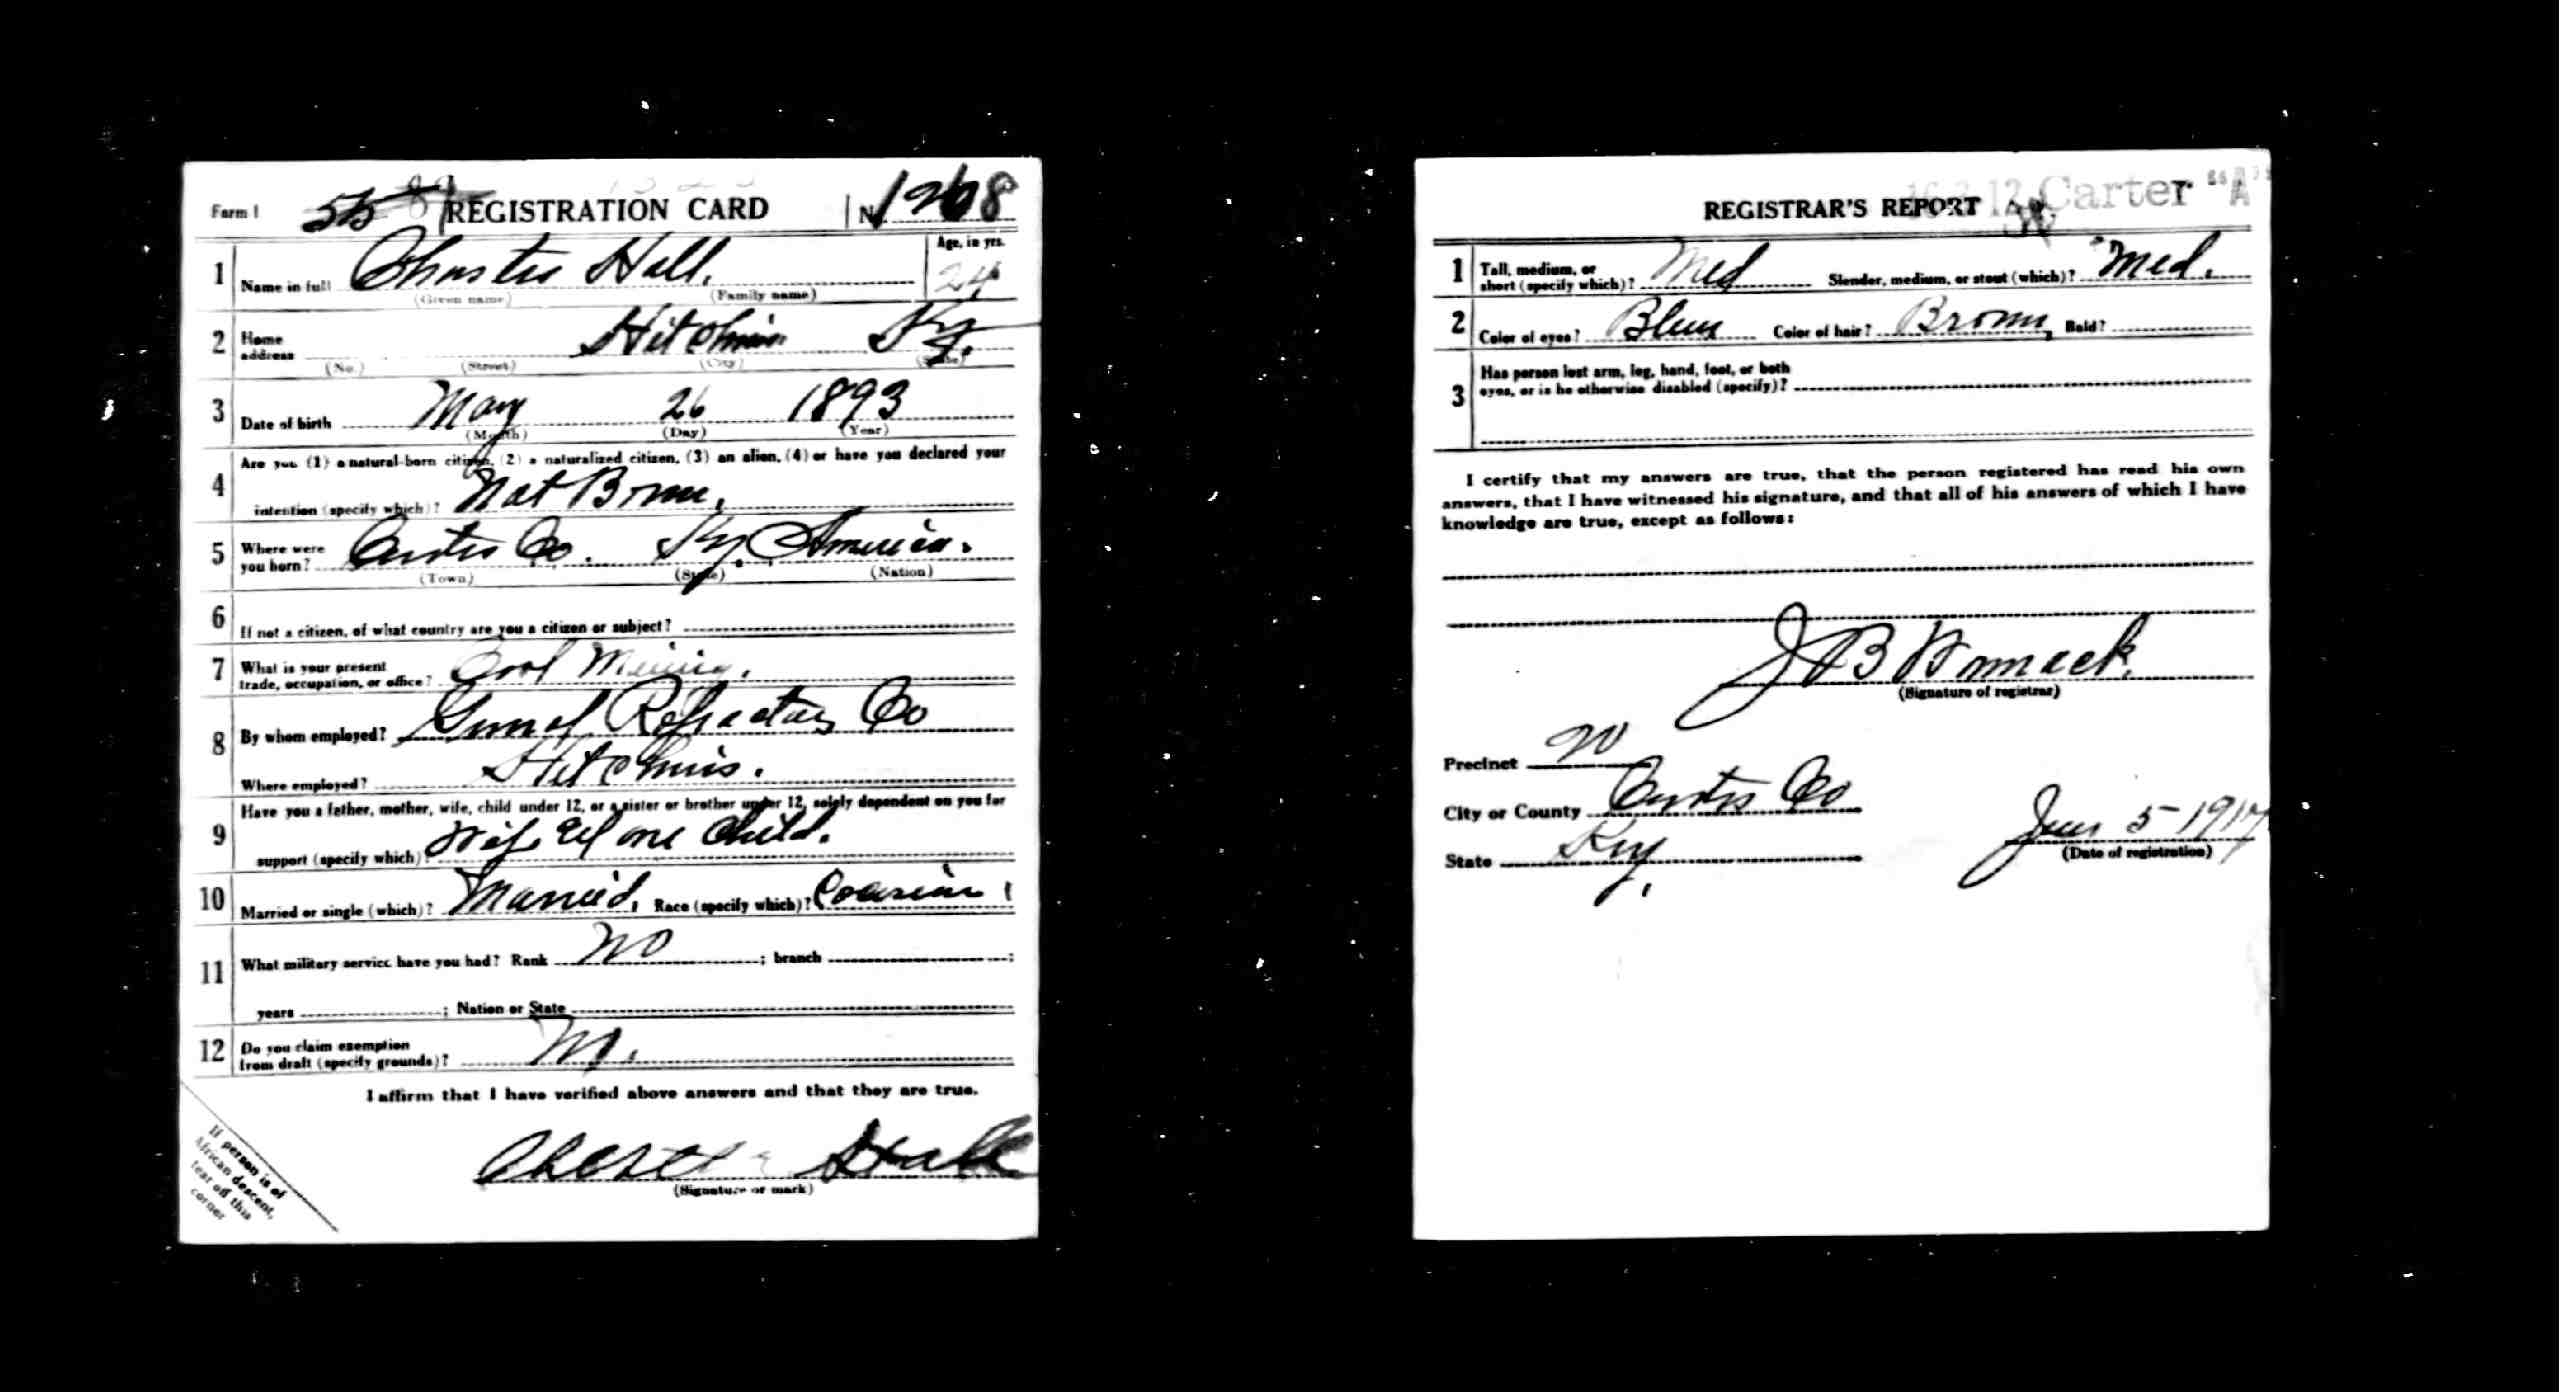 Form 1 515 REGISTRATION CARD No. 1268
1 Name in full Chester Hall. Age, in yrs. 24
(Given name) (Family name)
2 Home address Hitchins Ky.
(No.) (Street) (City) (State)
3 Date of birth May 26 1893
(Month) (Day) (Year)
4 Are you (1) a natural-born citizen, (2) a naturalized citizen, (3) an alien, (4) or have you declared your
intention (specify which)? Nat Born.
5 Where were you born? Carter Co. Ky. America.
(Town) (State) (Nation)
6 If not a citizen, of what country are you a citizen or subject?
7 What is your present trade, occupation, or office? Coal Mining.
8 By whom employed? Refractory Co
Where employed? Hitchins.
9 Have you a father, mother, wife, child under 12, or a sister or brother under 12, solely dependent on you for
support (specify which)? Wife one child.
10 Married or single (which)? Married. Race (specify which)?
11 What military service have you had? Rank No ; branch ;
years ; Nation or State
12 Do you claim exemption from draft (specify grounds)? No.
I affirm that I have verified above answers and that they are true.
Chester Hall
(Signature or mark)
If person is of
African descent,
tear off this
corner
REGISTRAR'S REPORT Carter "A"
1 Tall, medium, or short (specify which)? Med Slender, medium, or stout (which)? Med.
2 Color of eyes? Blue Color of hair? Brown Bald?
3 Has person lost arm, leg, hand, foot, or both
eyes, or is he otherwise disabled (specify)?
I certify that my answers are true, that the person registered has read his own
answers, that I have witnessed his signature, and that all of his answers of which I have
knowledge are true, except as follows:
J B Womack.
(Signature of registrar)
Precinct
City or County Carter Co
State Ky. June 5-1917
(Date of registration)